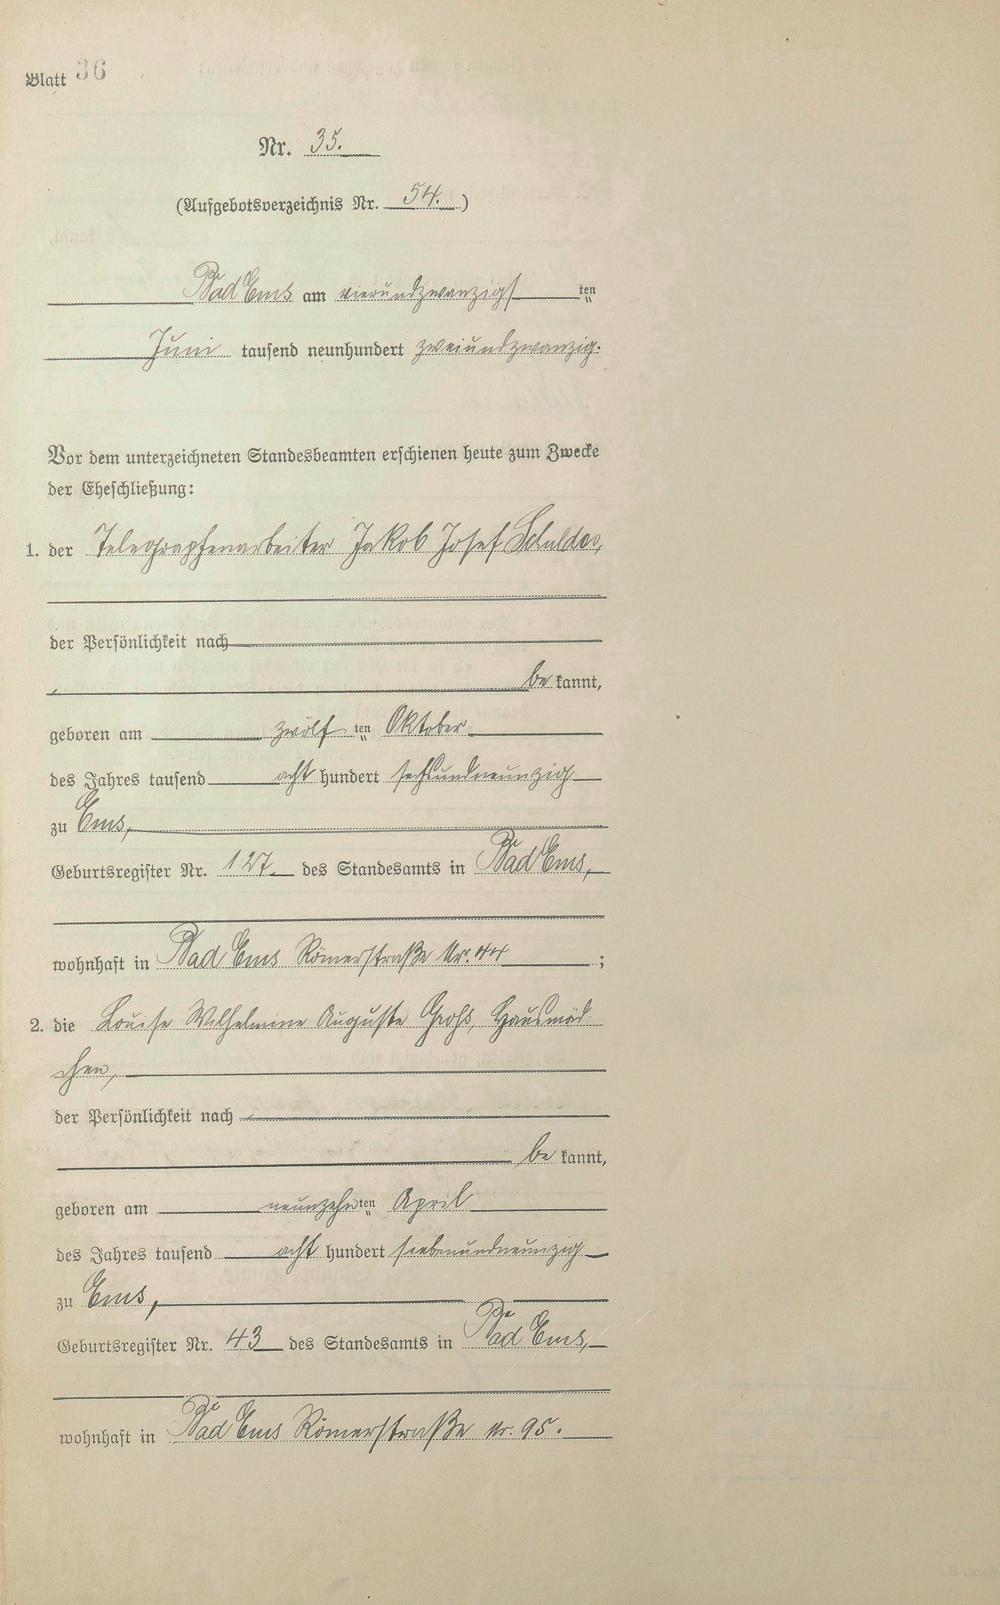 Blatt 36
Nr. 35.
(Aufgebotsverzeichnis Nr. 54.)
Bad Ems am vierundzwanzigsten
Juni tausend neunhundert zweiundzwanzig.
Vor dem unterzeichneten Standesbeamten erschienen heute zum Zwecke
der Eheschließung:
1. der Telegraphenarbeiter Jakob Josef
der Persönlichkeit nach
bekannt,
geboren am zwölften Oktober
des Jahres tausend acht hundert sechsundneunzig
zu Ems,
Geburtsregister Nr. 127. des Standesamts in Bad Ems,
wohnhaft in Bad Ems Römerstraße Nr. 44;
2. die Louise Wilhelmine Auguste Grohs, Hausmäd-
chen,
der Persönlichkeit nach
bekannt,
geboren am neunzehnten April
des Jahres tausend acht hundert siebenundneunzig
zu Ems,
Geburtsregister Nr. 43 des Standesamts in Bad Ems,
wohnhaft in Bad Ems Römerstraße Nr. 95.